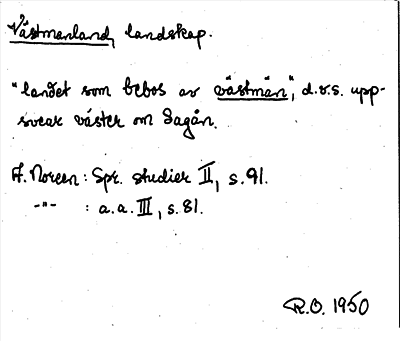 Västmanland, landskap.
"landet som bebos av västmän", d.v.s. upp-
svear väster om Sagån.
A. Noreen: Spr. studier II, s. 91.
-"- : a.a. III, s. 81.
R.O. 1950